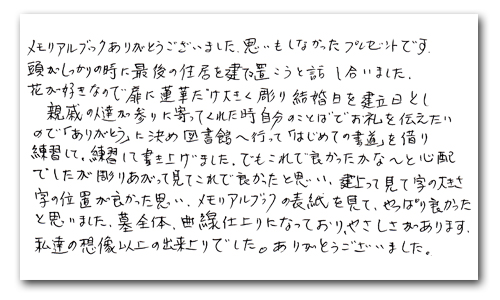 メモリアルブックありがとうございました。思いもしなかったプレゼントです。
頭がしっかりの時に最後の住居を建て置こうと話し合いました。
花が好きなので扉に蓮華だけ大きく彫り結婚日を建立日とし
親戚の人達が参りに寄ってくれた時自分のことばでお礼を伝えたい
ので「ありがとう」に決め図書館へ行って「はじめての書道」を借り
練習して、練習して書き上げました。でもこれで良かったかな〜と心配
でしたが彫りあがって見てこれで良かったと思い、建上って見て字の大きさ
字の位置が良かった思い、メモリアルブックの表紙を見て、やっぱり良かった
と思いました。墓全体、曲線仕上りになっており、やさしさがあります。
私達の想像以上の出来上りでした。ありがとうございました。